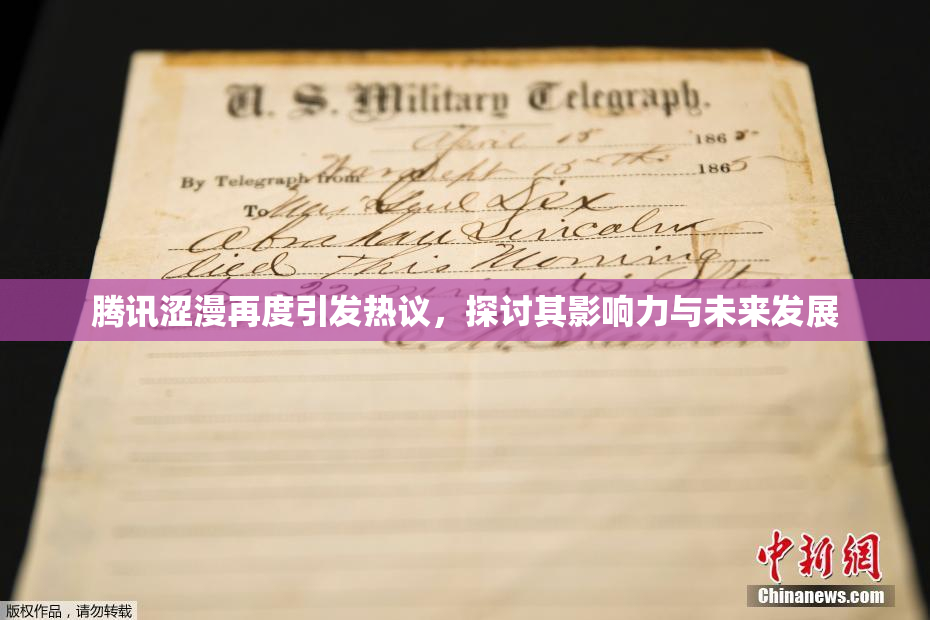 U. S. Military Telegraph.
April 15 1865
By Telegraph from War Dept 15th 1865
To Maj Genl Dix
Abraham Lincoln
died This Morning
at 22 minutes after
腾讯涩漫再度引发热议，探讨其影响力与未来发展
E. M. Stanton
中新网
Chinanews.com
版权作品，请勿转载